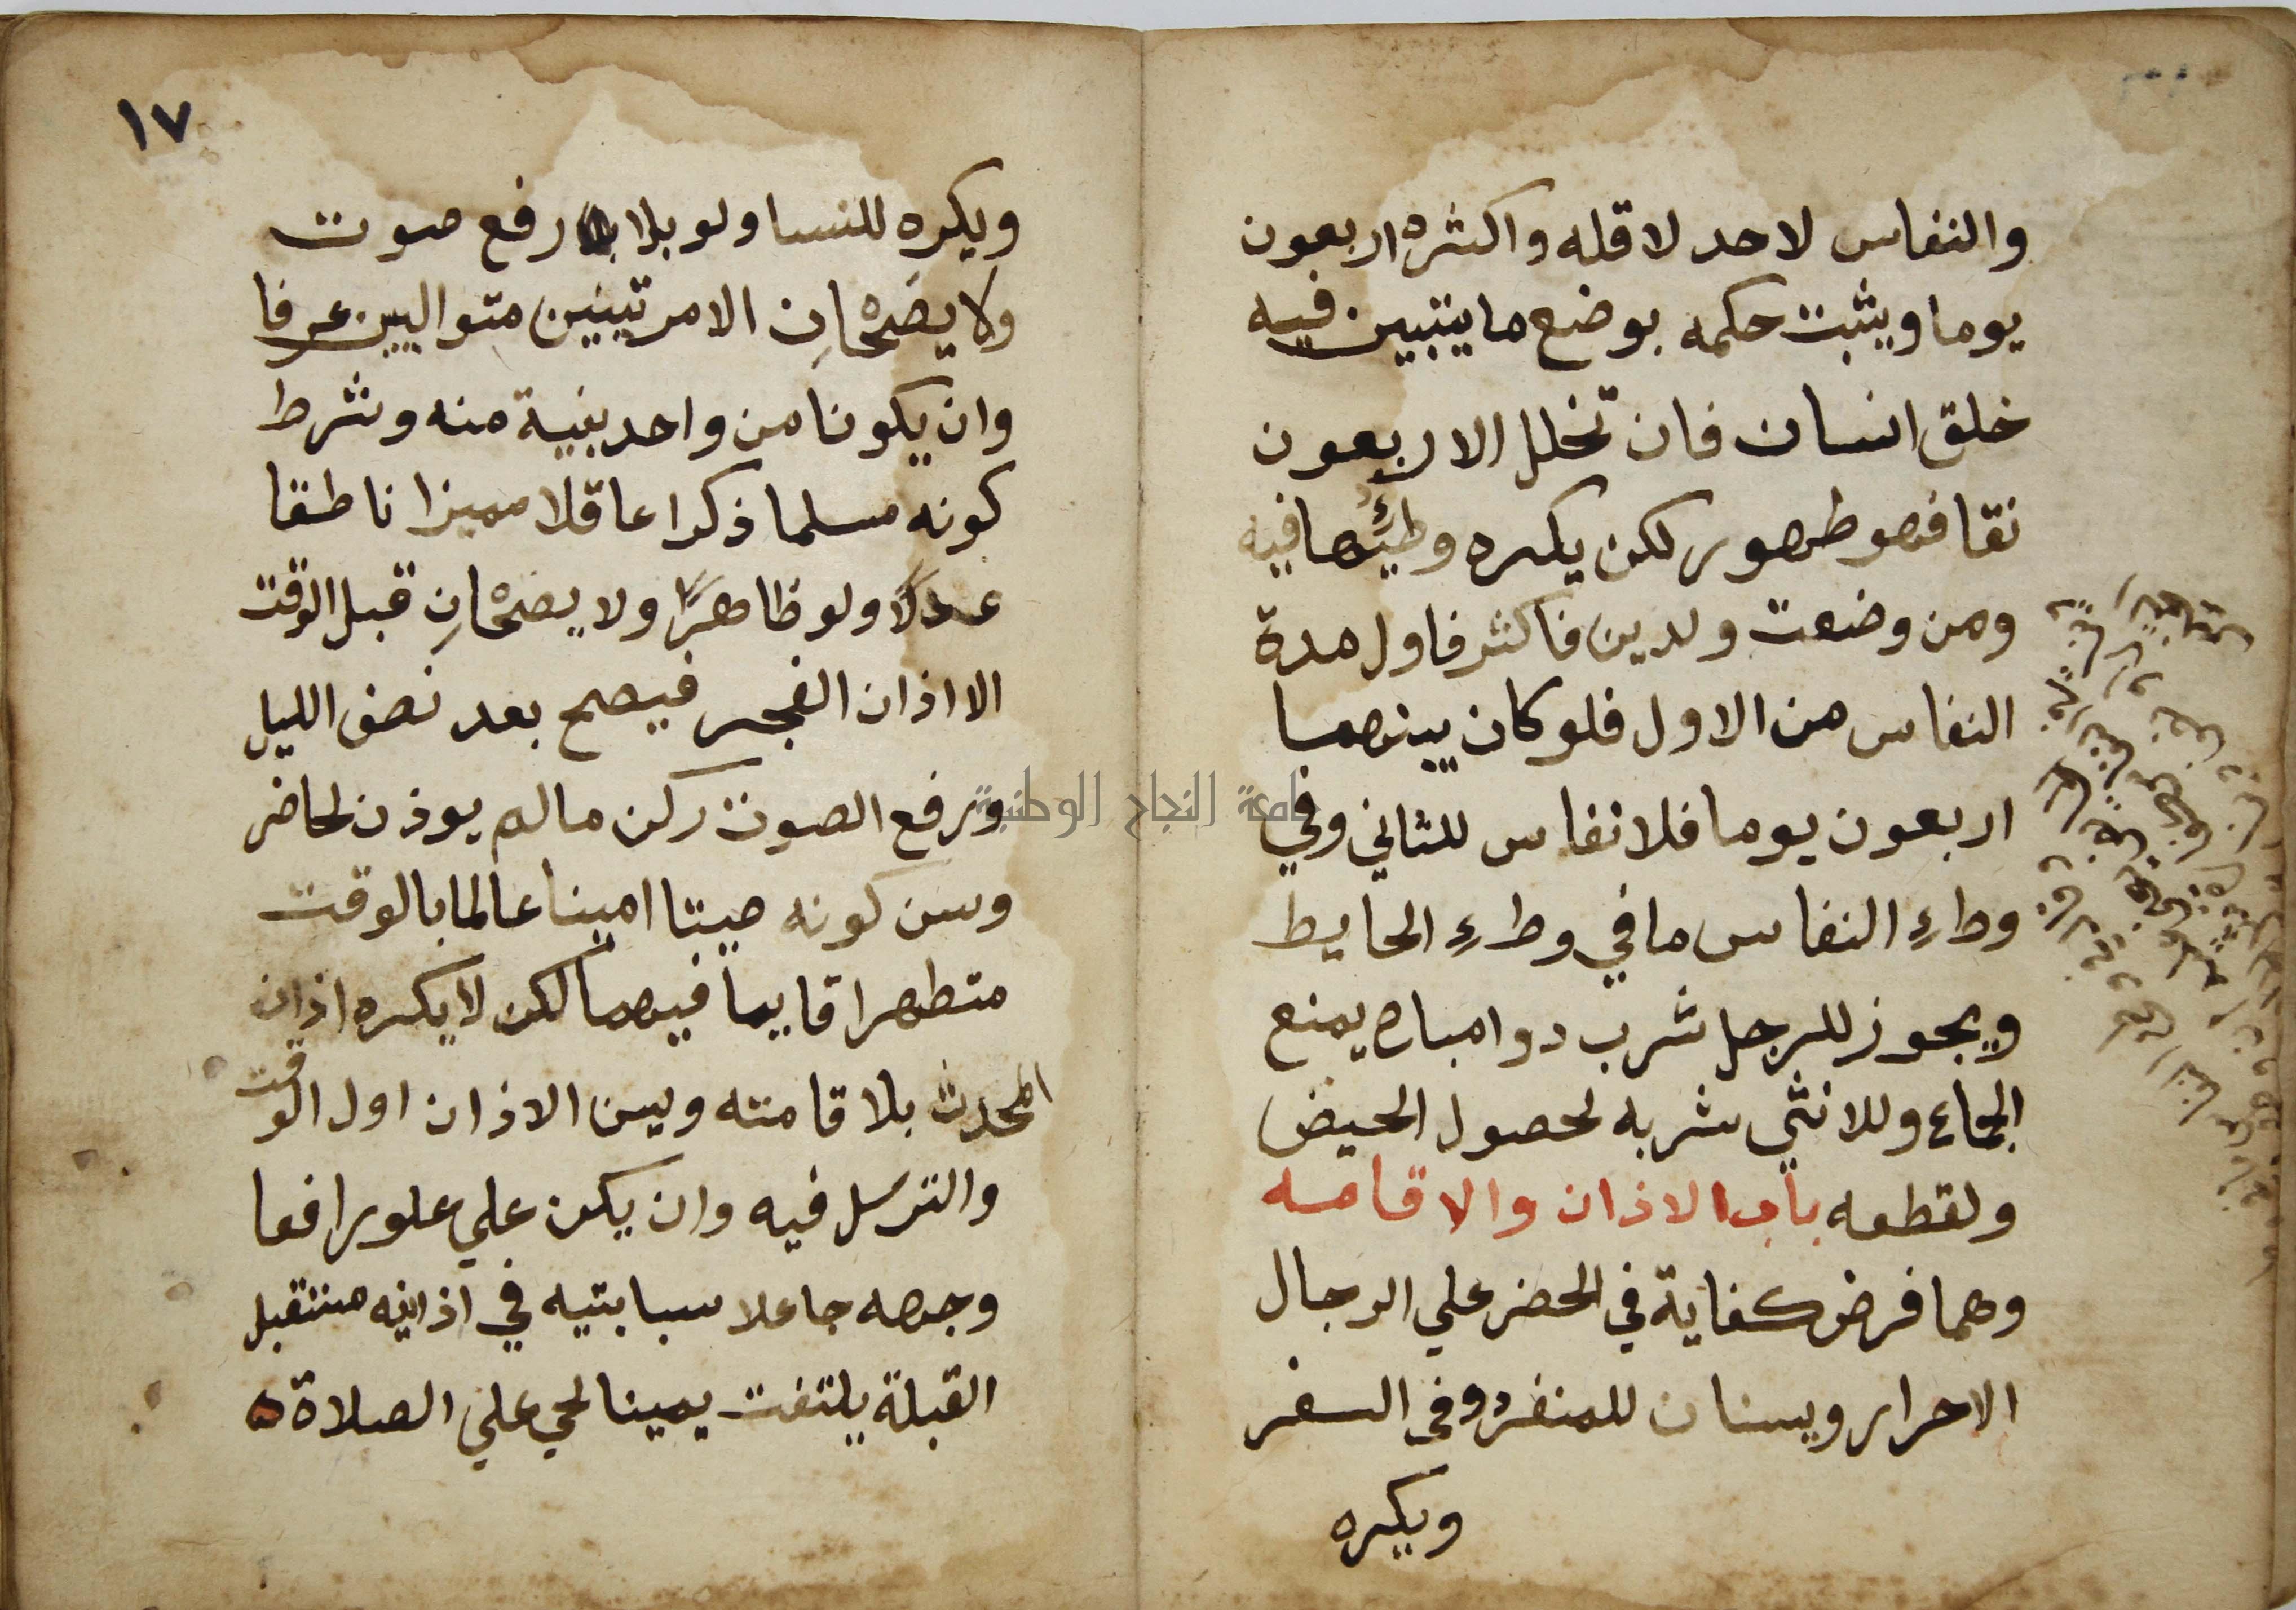 والنفاس لاحد لاقله واكثره اربعون
يوما ويثبت حكمه بوضع ما يتبين فيه
خلق انسان فان تخلل الاربعون
نقا فهو طهور لكن يكره وطئها فيه
ومن وضعت ولدين فاكثر فاول مدة
النفاس من الاول فلو كان بينهما
اربعون يوما فلا نفاس للثاني وفي
وطاءِ النفاس ما في وطاءِ الحايط
ويجوز للرجل شرب دوا مباح يمنع
الجماع وللانثي شربه لحصول الحيض
ولقطعه باب الاذان والاقامه
وهما فرض كفاية في الحضر علي الرجال
الاحرار ويسنان للمنفرد وفي السفر
ويكره
١٧
ويكره للنسا ولو بلا رفع صوت
ولا يصَحّانِ الا مرتبين متواليين عرفا
وان يكونا من واحد بنية منه وشرط
كونه مسلما ذكرا عاقلا مميزا ناطقا
عدلًا ولو ظاهرًا ولا يصحّانِ قبل الوقت
الا اذان الفجر فيصح بعد نصف الليل
ورفع الصوت ركن ما لم يوذن لحاضر
وسن كونه صيتا امينا عالما بالوقت
متطهرا قايما فيهما لكن لا يكره اذان
المحدث بلا قامته ويسن الاذان اول الوقت
والترسل فيه وان يكن علي علو رافعا
وجهه جاعلا سبابتيه في اذانيه مستقبل
القبلة يلتفت يمينا لحي علي الصلاة
جامعة النجاح الوطنية